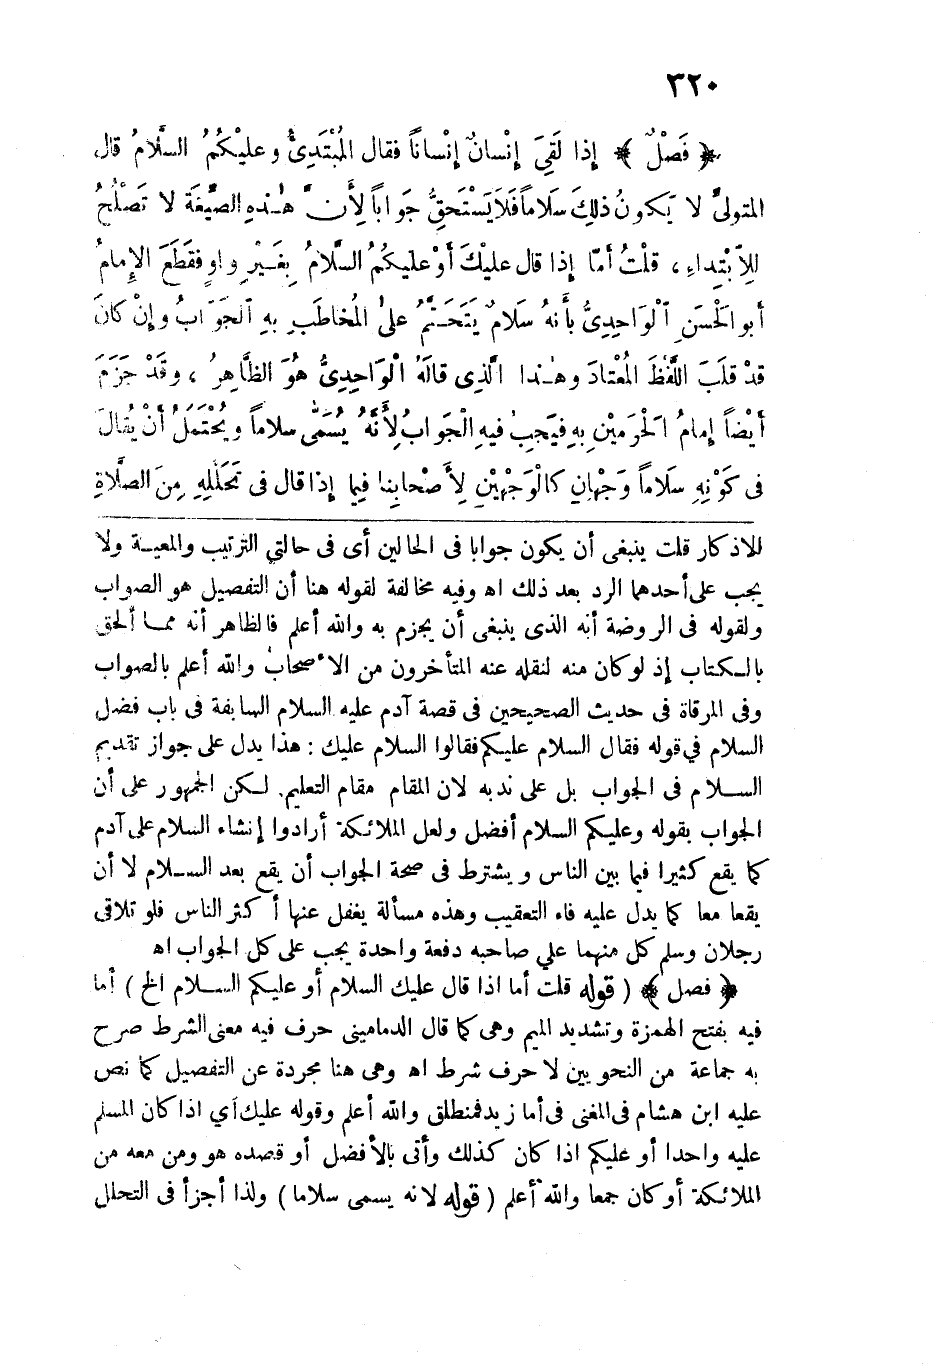 ٣٢٠
﴿ فَصْلٌ ﴾ إِذا لَقِيَ إِنْسانٌ إِنْساناً فقال المُبْتَدِئُ وعليْكُمُ السَّلامُ قال
المتولىُّ لا يَكونُ ذلِكَ سَلاماً فَلاَ يَسْتَحِقُّ جَواباً لِأَنَّ هٰذِهِ الصِّيغَةَ لا تَصْلُحُ
لِلِابْتِداءِ ، قلْتُ أَمَّا إِذا قال عليْكَ أَوْ عليكُمُ السَّلامُ بِغَيْرِ واوٍ فقَطَعَ الإِمامُ
أبو الحَسَنِ الْوَاحِدِىُّ بأَنهُ سَلامٌ يَتَحَتَّمُ على المُخاطَبِ بهِ الجَوَابُ وإِنْ كانَ
قدْ قلَبَ اللَّفْظَ المُعْتادَ وهٰذا الَّذِى قالَهُ الْوَاحِدِىُّ هُوَ الظَّاهِرُ ، وقَدْ جَزَمَ
أَيْضاً إِمامُ الحَرمَيْنِ بهِ فيَجِبُ فيهِ الْجَوابُ لِأَنَّهُ يُسَمَّى سلاماً ويُحْتَمَلُ أَنْ يُقالَ
فى كَوْنِهِ سَلاماً وَجْهانِ كالْوَجْهَيْنِ لِأَصْحابِنا فِيما إِذا قال فى تَحَلُّلِهِ مِنَ الصَّلاةِ
للاذكار قلت ينبغى أن يكون جوابا فى الحالين أى فى حالتي الترتيب والمعية ولا
يجب على أحدهما الرد بعد ذلك اه وفيه مخالفة لقوله هنا أن التفصيل هو الصواب
ولقوله فى الروضة أنه الذى ينبغى أن يجزم به والله أعلم فالظاهر أنه مما ألحق
بالكتاب إذ لو كان منه لنقله عنه المتأخرون من الأصحاب والله أعلم بالصواب
وفى المرقاة فى حديث الصحيحين فى قصة آدم عليه السلام السابقة فى باب فضل
السلام في قوله فقال السلام عليكم فقالوا السلام عليك : هذا يدل على جواز تقديم
السلام فى الجواب بل على ندبه لان المقام مقام التعليم. لكن الجمهور على أن
الجواب بقوله وعليكم السلام أفضل ولعل الملائكة أرادوا إنشاء السلام على آدم
كما يقع كثيرا فيما بين الناس ويشترط فى صحة الجواب أن يقع بعد السلام لا أن
يقعا معا كما يدل عليه فاء التعقيب وهذه مسألة يغفل عنها أكثر الناس فلو تلاقى
رجلان وسلم كل منهما علي صاحبه دفعة واحدة يجب على كل الجواب اه
﴿ فصل ﴾ ( قوله قلت أما اذا قال عليك السلام أو عليكم السلام الخ ) أما
فيه بفتح الهمزة وتشديد الميم وهى كما قال الدمامينى حرف فيه معنى الشرط صرح
به جماعة من النحويين لا حرف شرط اه وهى هنا مجردة عن التفصيل كما نص
عليه ابن هشام فى المغنى فى أما زيد فمنطلق والله أعلم وقوله عليك أي اذا كان المسلم
عليه واحدا أو عليكم اذا كان كذلك وأتى بالأفضل أو قصده هو ومن معه من
الملائكة أو كان جمعا والله أعلم ( قوله لانه يسمى سلاما ) ولذا أجزأ فى التحلل